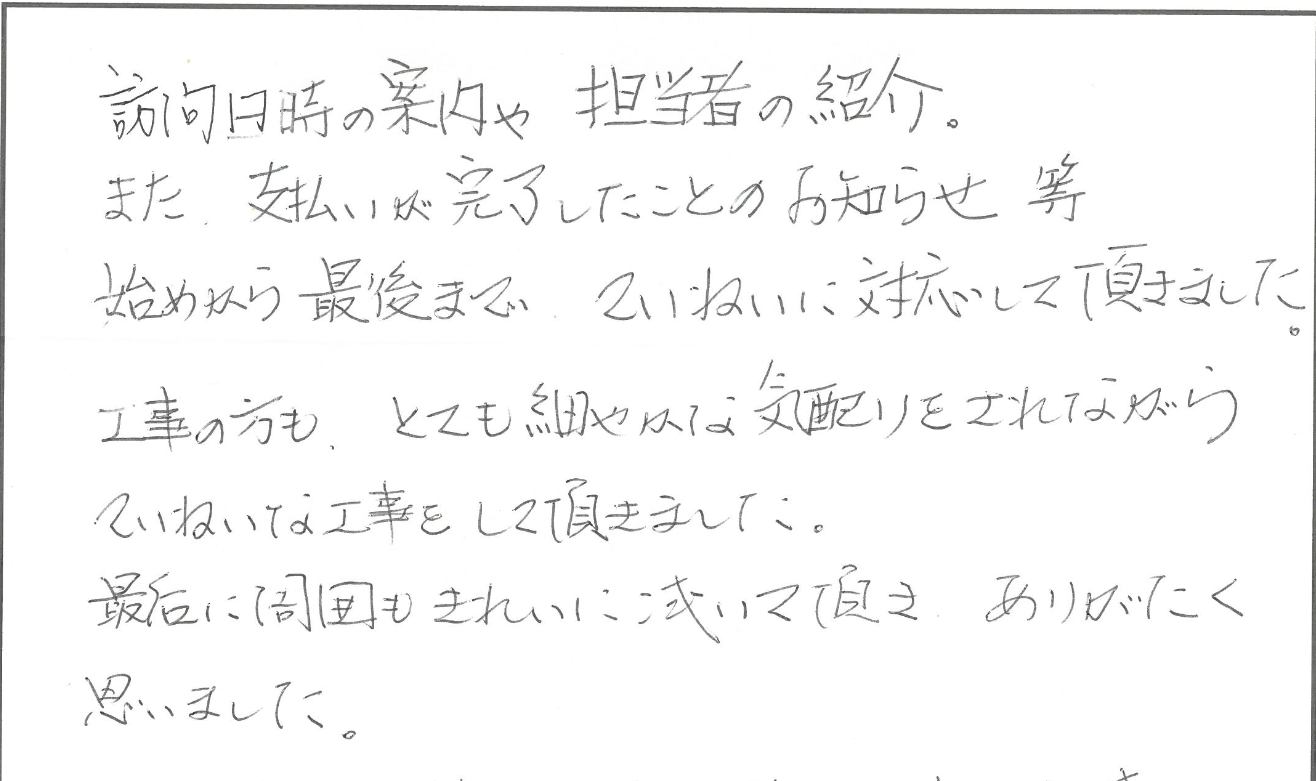 訪問日時の案内や 担当者の紹介。
また、支払いが完了したことのお知らせ 等
始めから最後まで、ていねいに対応して頂きました。
工事の方も、とても細やかな気配りをされながら
ていねいな工事をして頂きました。
最后に周囲もきれいに拭いて頂き、ありがたく
思いました。